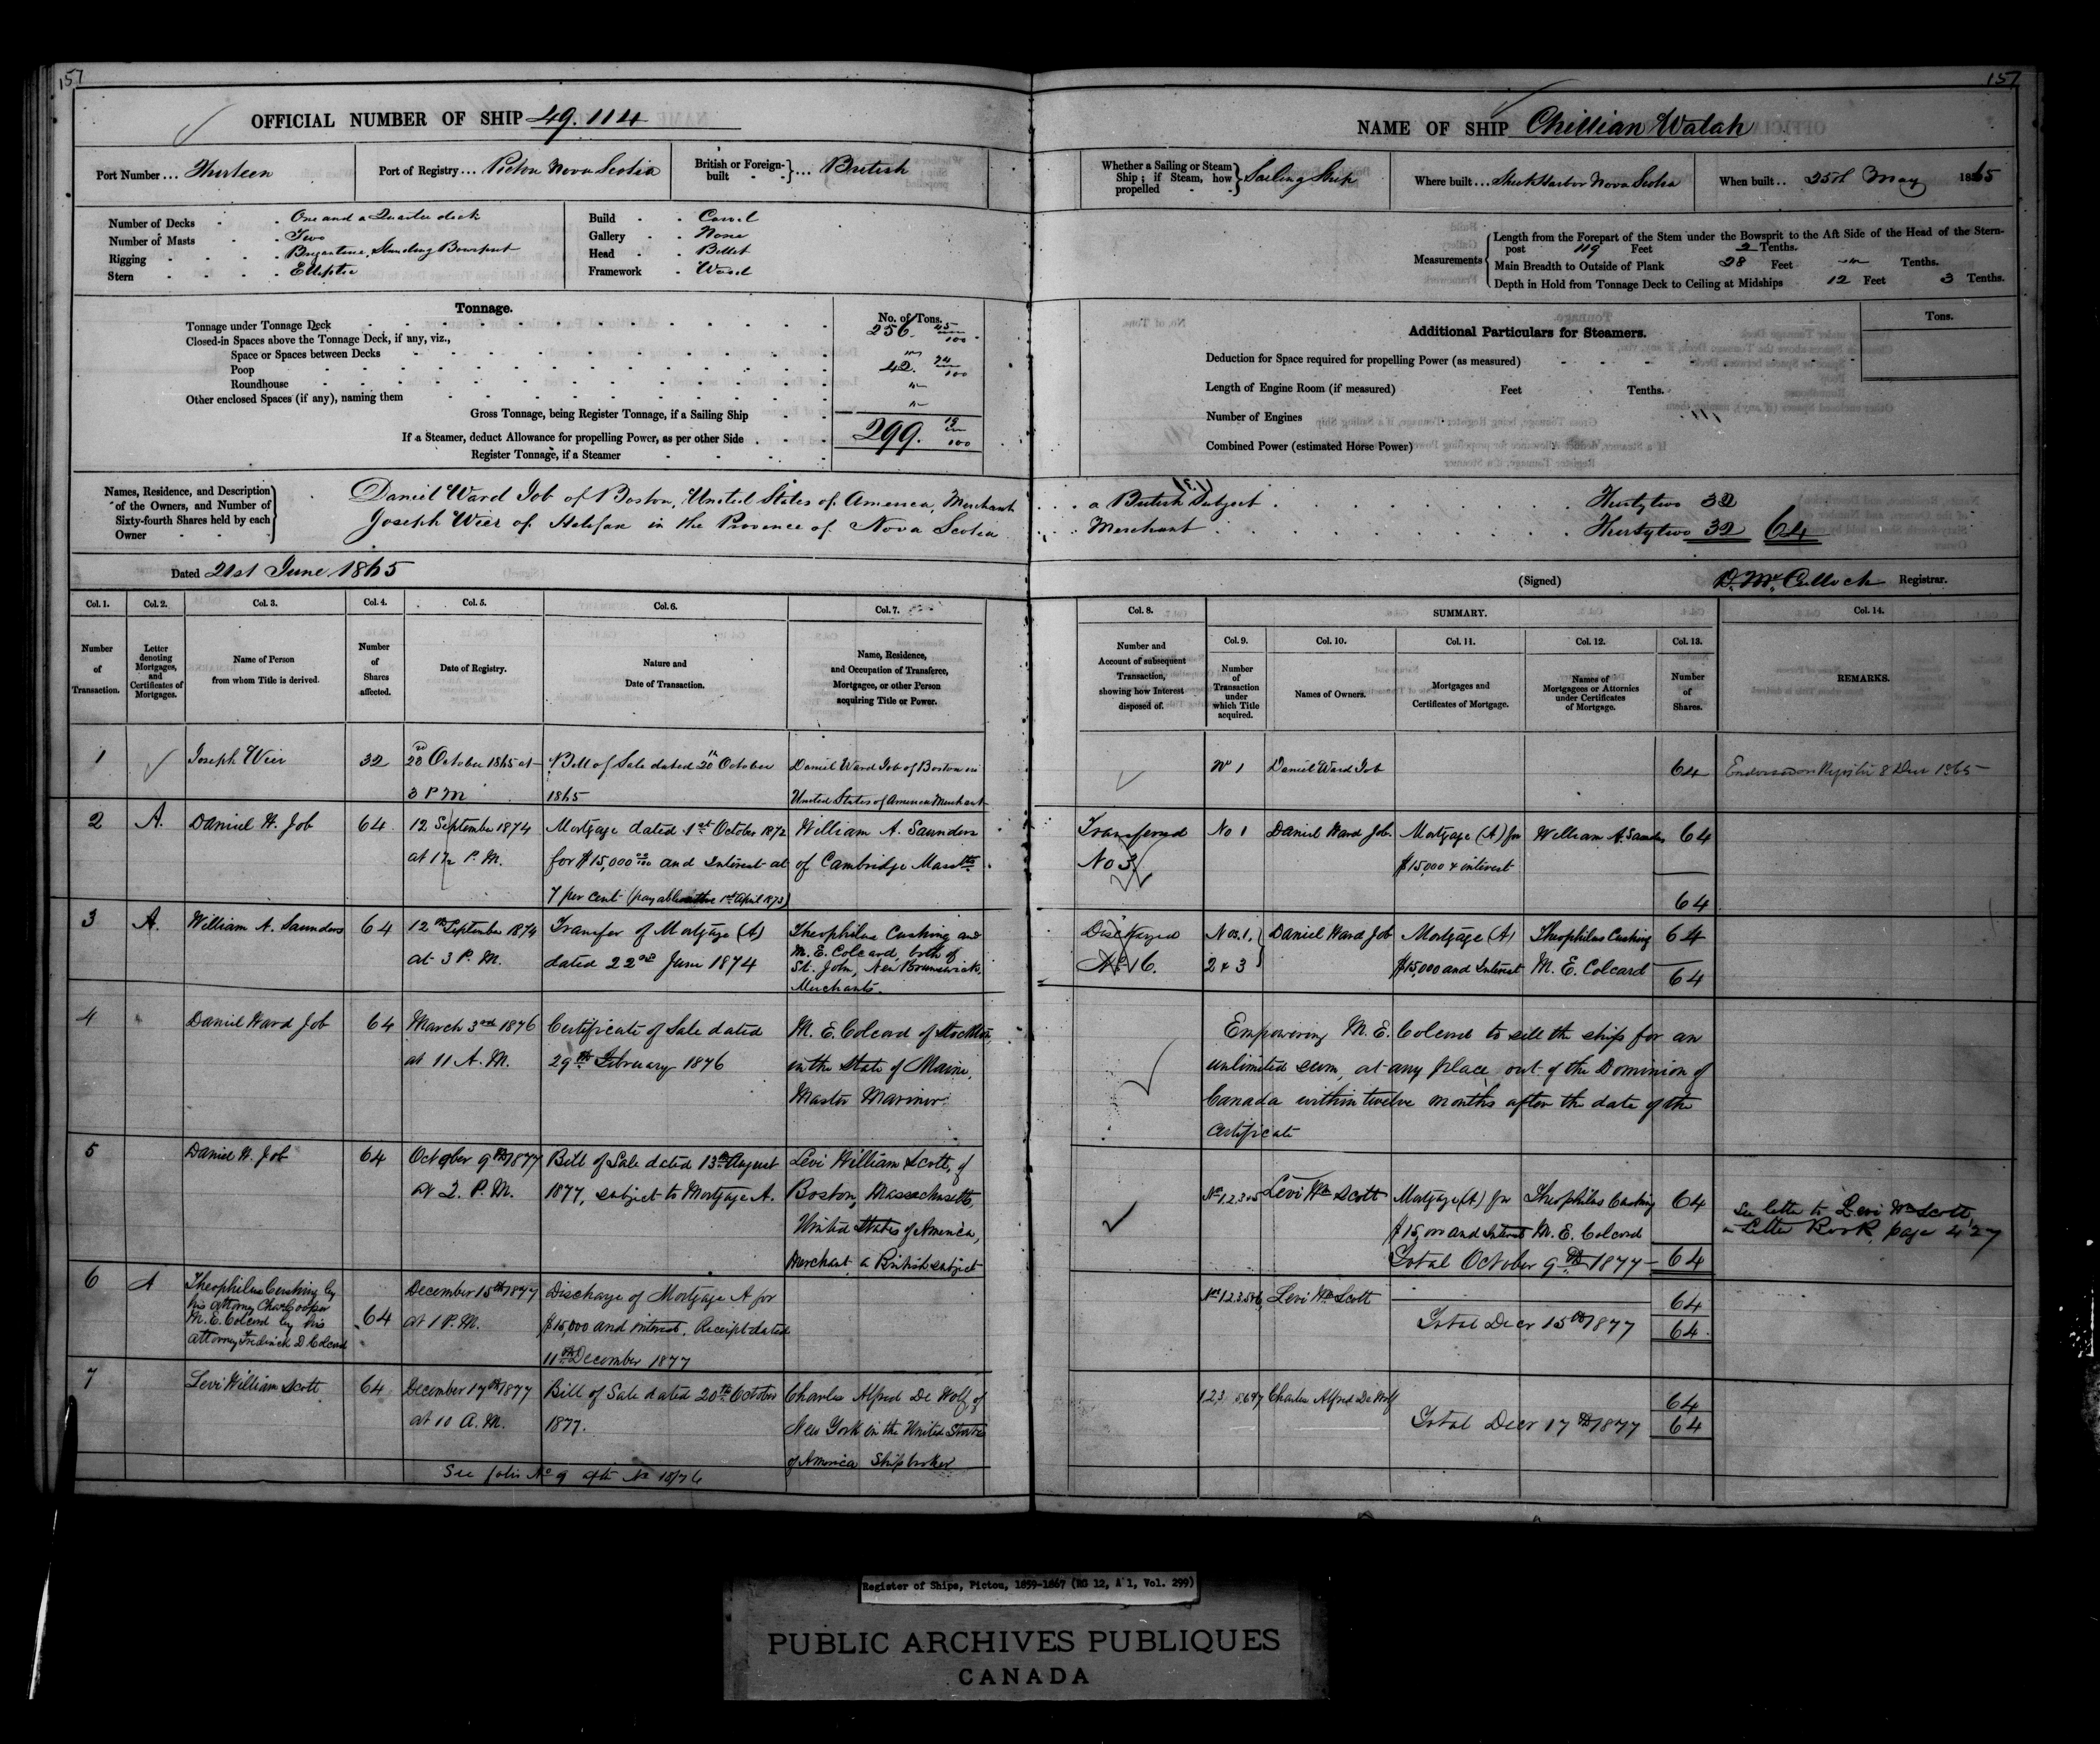 157
OFFICIAL NUMBER OF SHIP 49.114
Port Number ... Thirteen
Port of Registry .... Pictou Nova Scotia
British or Foreign-built } ... British
Number of Decks - One and a Quarter deck
Number of Masts - Two
Rigging - Brigantine, Standing Bowsprit
Stern - Elliptic
Build - Carvel
Gallery - None
Head - Billet
Framework - Wood
Tonnage.
No. of Tons.
Tonnage under Tonnage Deck 256. 45/100
Closed-in Spaces above the Tonnage Deck, if any, viz.,
Space or Spaces between Decks "
Poop 42. 74/100
Roundhouse "
Other enclosed Spaces (if any), naming them "
Gross Tonnage, being Register Tonnage, if a Sailing Ship 299. 19/100
If a Steamer, deduct Allowance for propelling Power, as per other Side
Register Tonnage, if a Steamer
Names, Residence, and Description of the Owners, and Number of Sixty-fourth Shares held by each Owner
Daniel Ward Job of Boston, United States of America, Merchant
Joseph Wier of Halifax in the Province of Nova Scotia
Dated 21st June 1865
Col. 1. Col. 2. Col. 3. Col. 4. Col. 5. Col. 6. Col. 7.
Number of Transaction.
Letter denoting Mortgages, and Certificates of Mortgages.
Name of Person from whom Title is derived.
Number of Shares affected.
Date of Registry.
Nature and Date of Transaction.
Name, Residence, and Occupation of Transferee, Mortgagee, or other Person acquiring Title or Power.
1 Joseph Wier 32 October 1865 at Bill of Sale dated October Daniel Ward Job of Boston in
3 P M 1865 United States of America Merchant
2 A. Daniel W. Job 64 12 September 1874 Mortgage dated 1st October 1872 William A. Saunders
at P. M. for $15,000 and Interest at of Cambridge Masstts
7 per cent (payable 1st April 1873)
3 A. William A. Saunders 64 12th September 1874 Transfer of Mortgage (A) Theophilus Cushing and
at 3 P. M. dated 22nd June 1874 M. E. Colcord, both of
St. John, New Brunswick,
Merchants.
4 Daniel Ward Job 64 March 3rd 1876 Certificate of Sale dated M. E. Colcord of Stockton,
at 11 A. M. 29th February 1876 in the State of Maine,
Master Mariner
5 Daniel W. Job 64 October 9th 1877 Bill of Sale dated 13th August Levi William Scott, of
at 2. P. M. 1877, subject to Mortgage A. Boston, Massachusetts,
United States of America,
Merchant a British subject
6 A Theophilus Cushing by December 15th 1877 Discharge of Mortgage A for
his Attorney Chas Cooper
M. E. Colcord by his 64 at 1 P. M. $15,000 and interest. Receipt dated
attorney Frederick D Colcord 11th December 1877
7 Levi William Scott 64 December 17th 1877 Bill of Sale dated 20th October Charles Alfred De Wolf, of
at 10 A. M. 1877. New York in the United States
of America Shipbroker
See folio No 9
157
NAME OF SHIP Chillian Walah
Whether a Sailing or Steam Ship ; if Steam, how propelled } Sailing Ship
Where built ... Sheet Harbor Nova Scotia
When built .. 25th May 1865
Measurements
Length from the Forepart of the Stem under the Bowsprit to the Aft Side of the Head of the Stern-
post 119 Feet 2 Tenths.
Main Breadth to Outside of Plank 28 Feet " Tenths.
Depth in Hold from Tonnage Deck to Ceiling at Midships 12 Feet 3 Tenths.
Additional Particulars for Steamers.
Tons.
Deduction for Space required for propelling Power (as measured)
Length of Engine Room (if measured) Feet Tenths.
Number of Engines
Combined Power (estimated Horse Power)
a British Subject Thirtytwo 32
Merchant Thirtytwo 32 64
(Signed) D. McCulloch Registrar.
Col. 8. SUMMARY. Col. 14.
Col. 9. Col. 10. Col. 11. Col. 12. Col. 13.
Number and Account of subsequent Transaction, showing how Interest disposed of.
Number of Transaction under which Title acquired.
Names of Owners.
Mortgages and Certificates of Mortgage.
Names of Mortgagees or Attornies under Certificates of Mortgage.
Number of Shares.
REMARKS.
No 1 Daniel Ward Job 64 8 Decr 1865
Transferred No 1 Daniel Ward Job. Mortgage (A) for William A. Saunders 64
No 3 $15,000 & interest
64
Discharged Nos. 1, Daniel Ward Job Mortgage (A) Theophilus Cushing 64
2 & 3 $15,000 and Interest M. E. Colcord 64
Empowering M. E. Colcord to sell the ship for an
unlimited sum, at any place out of the Dominion of
Canada within twelve months after the date of the
Certificate
Nos 1.2.3 & 5 Levi Wm Scott Mortgage (A) for Theophilus Cushing 64
$15,000 and Interest M. E. Colcord
Total October 9th 1877 64
See letter to Levi Wm Scott,
Letter Book, page 427
Nos 1.2.3.5 & 6 Levi Wm Scott 64
Total Decr 15th 1877 64
1.2.3 5.6 & 7 Charles Alfred De Wolf 64
Total Decr 17th 1877 64
Register of Ships, Pictou, 1859-1867 (RG 12, A 1, Vol. 299)
PUBLIC ARCHIVES PUBLIQUES
CANADA